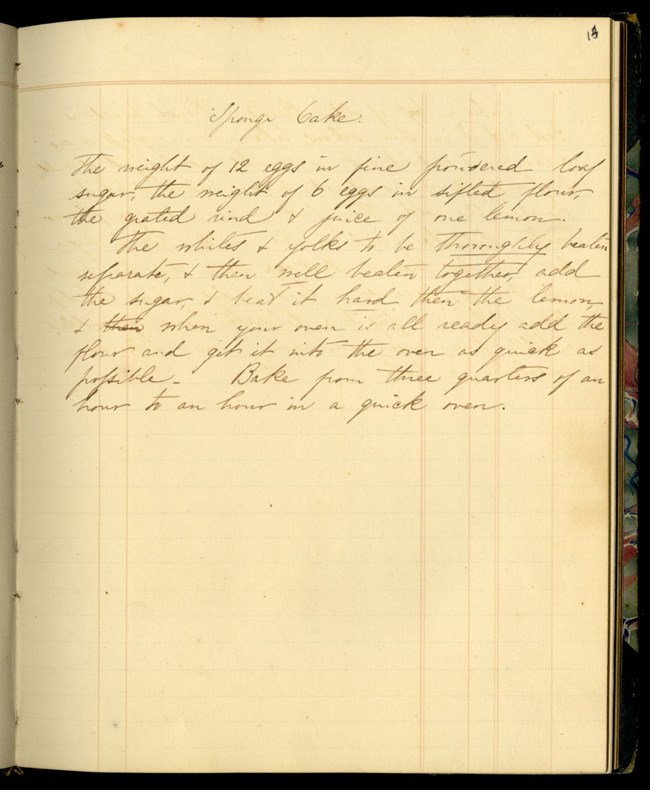 13
Sponge Cake.
The weight of 12 eggs in fine powdered loaf
sugar, the weight of 6 eggs in sifted flour,
the grated rind & juice of one lemon.
The whites & yolks to be thoroughly beaten
separate, & then well beaten together, add
the sugar, & beat it hard then the lemon,
& then when your oven is all ready add the
flour and get it into the oven as quick as
possible - Bake from three quarters of an
hour to an hour in a quick oven.